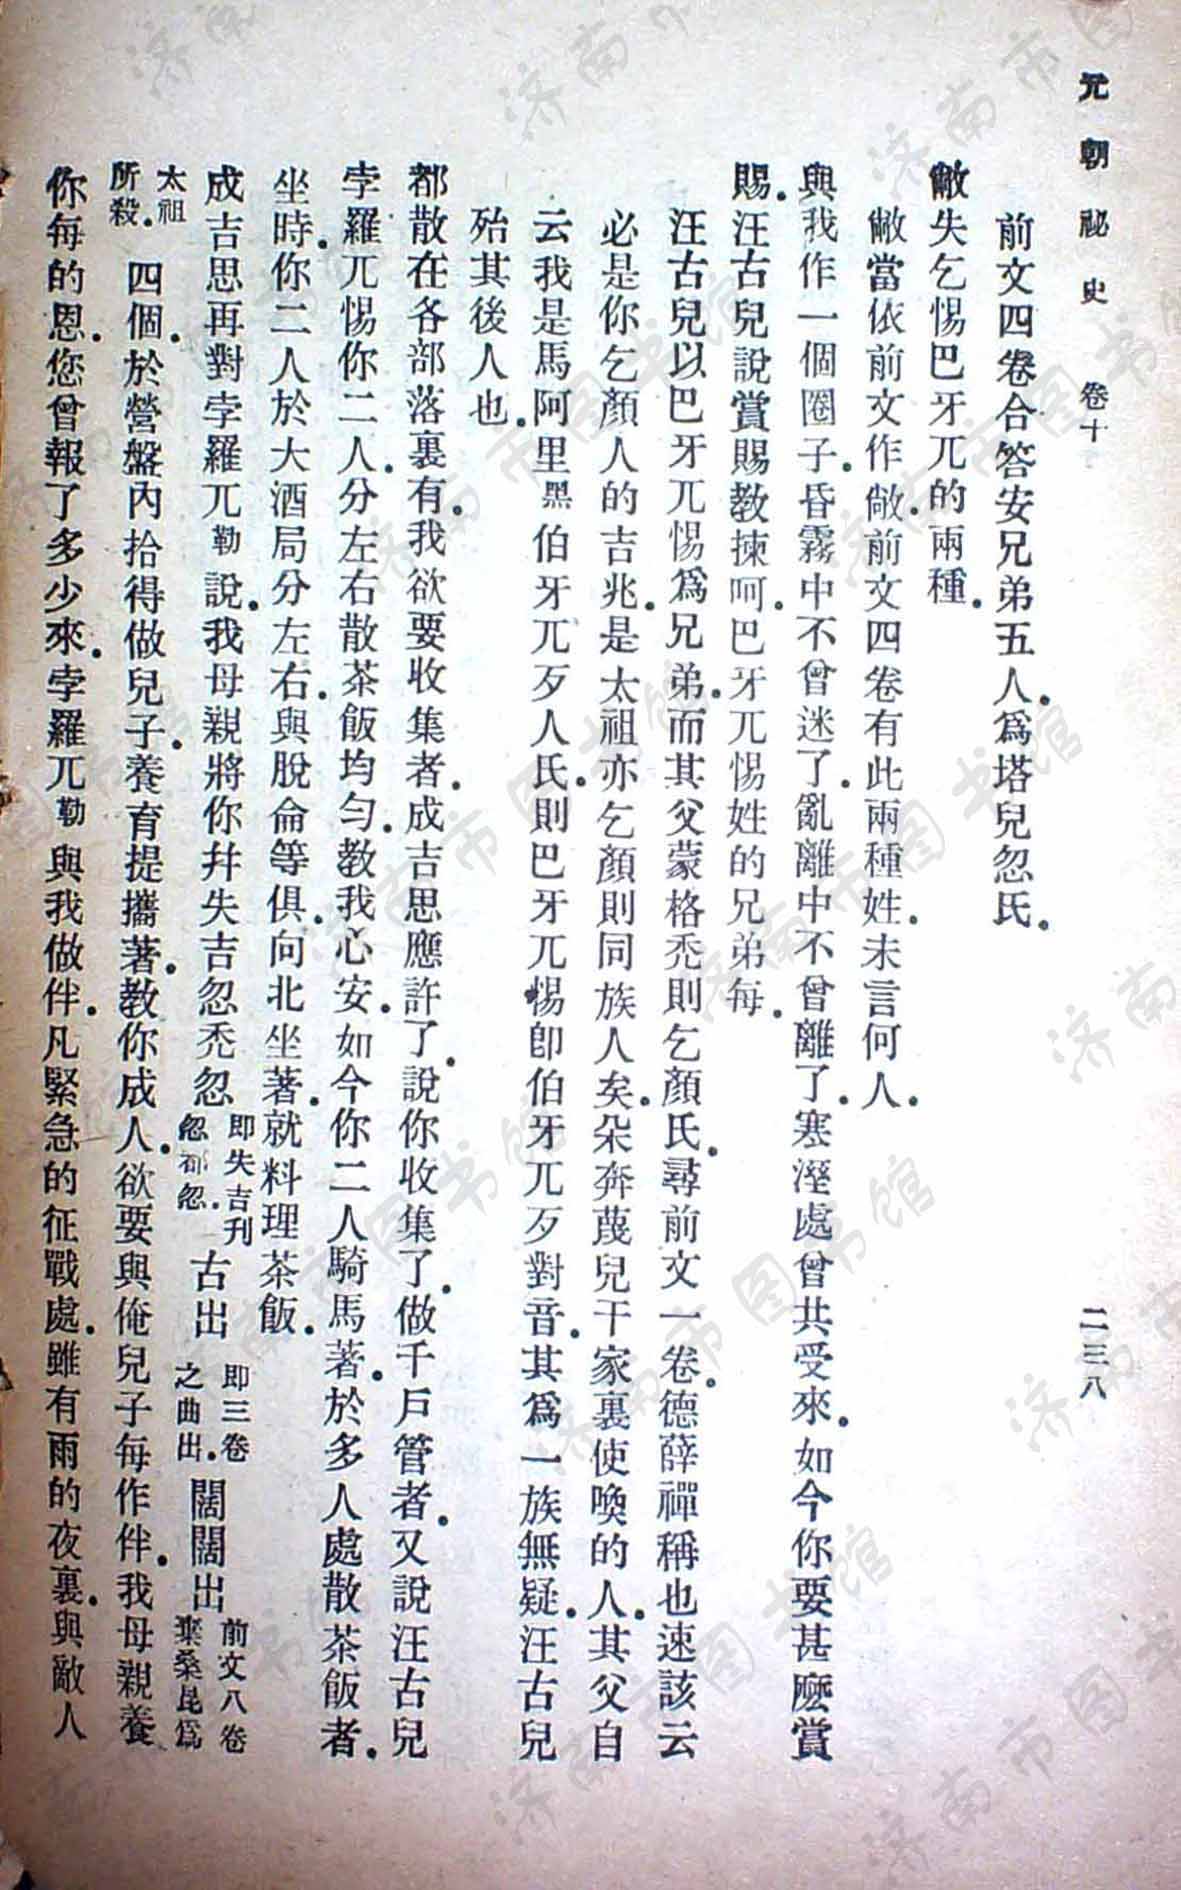 元朝祕史　卷十　二三八
前文四卷合答安兄弟五人．爲塔兒忽氏．
敝失乞惕巴牙兀的兩種．
敝當依前文作敞．前文四卷有此兩種姓．未言何人．
與我作一個圈子．昏霧中不曾迷了．亂離中不曾離了．寒溼處曾共受來．如今你要甚麽賞
賜．汪古兒說賞賜教揀呵．巴牙兀惕姓的兄弟每．
汪古兒以巴牙兀惕爲兄弟．而其父蒙格禿則乞顏氏．尋前文一卷．德薛禪稱也速該云
必是你乞顏人的吉兆．是太祖亦乞顏則同族人矣．朵奔蔑兒干家裏使喚的人．其父自
云我是馬阿里黑伯牙兀歹人氏．則巴牙兀惕卽伯牙兀歹對音．其爲一族無疑．汪古兒
殆其後人也．
都散在各部落裏有．我欲要收集者．成吉思應許了．說你收集了．做千戶管者．又說汪古兒
孛羅兀惕你二人．分左右散茶飯均勻．教我心安．如今你二人騎馬著．於多人處散茶飯者．
坐時．你二人於大酒局分左右．與脫侖等俱．向北坐著．就料理茶飯．
成吉思再對孛羅兀勒說．我母親將你幷失吉忽禿忽即失吉刊忽都忽．古出即三卷之曲出．闊闊出前文八卷棄桑昆爲
太祖所殺．四個．於營盤內拾得做兒子．養育提攜著．教你成人．欲要與俺兒子每作伴．我母親養
你每的恩．您曾報了多少來．孛羅兀勒與我做伴．凡緊急的征戰處．雖有雨的夜裏．與敵人